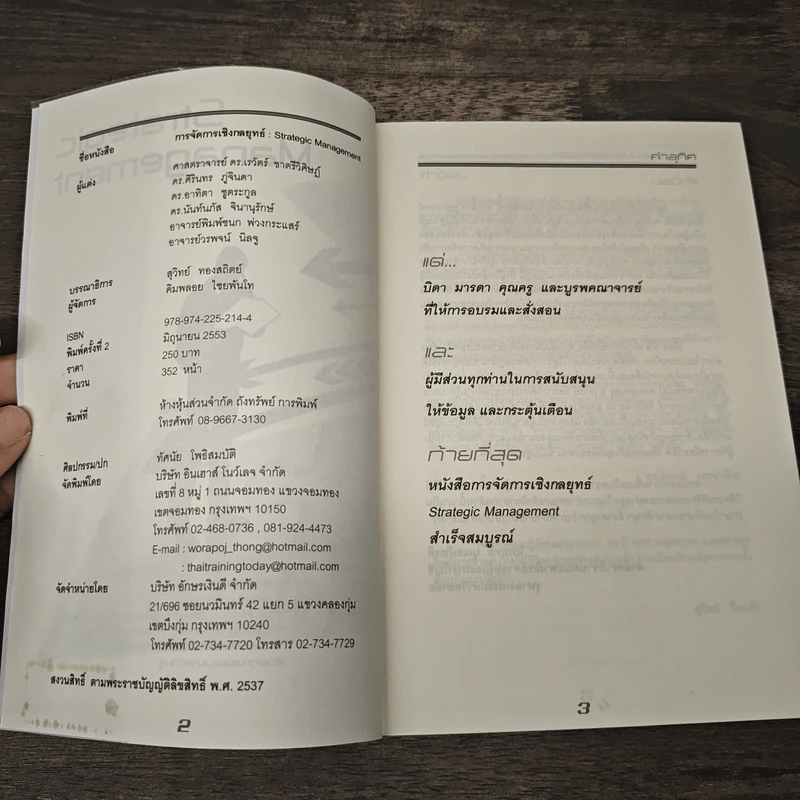 ชื่อหนังสือ การจัดการเชิงกลยุทธ์ : Strategic Management
ผู้แต่ง ศาสตราจารย์ ดร.เรวัตร์ ชาตรีวิศิษฏ์
ดร.ศิรินทร ภู่จินดา
ดร.อาทิตา ชูตระกูล
ดร.นันท์นภัส จินานุรักษ์
อาจารย์พิมพ์ชนก พ่วงกระแสร์
อาจารย์วรพจน์ นิลจู
บรรณาธิการ สุวิทย์ ทองสถิตย์
ผู้จัดการ คิมพลอย ไชยพันโท
ISBN 978-974-225-214-4
พิมพ์ครั้งที่ 2 มิถุนายน 2553
ราคา 250 บาท
จำนวน 352 หน้า
พิมพ์ที่ ห้างหุ้นส่วนจำกัด ถังทรัพย์ การพิมพ์
โทรศัพท์ 08-9667-3130
ศิลปกรรม/ปก ทัศนัย โพธิสมบัติ
จัดพิมพ์โดย บริษัท อินเฮาส์ โนว์เลจ จำกัด
เลขที่ 8 หมู่ 1 ถนนจอมทอง แขวงจอมทอง
เขตจอมทอง กรุงเทพฯ 10150
โทรศัพท์ 02-468-0736 , 081-924-4473
E-mail : worapoj_thong@hotmail.com
: thaitrainingtoday@hotmail.com
จัดจำหน่ายโดย บริษัท อักษรเงินดี จำกัด
21/696 ซอยนวมินทร์ 42 แยก 5 แขวงคลองกุ่ม
เขตบึงกุ่ม กรุงเทพฯ 10240
โทรศัพท์ 02-734-7720 โทรสาร 02-734-7729
สงวนสิทธิ์ ตามพระราชบัญญัติลิขสิทธิ์ พ.ศ. 2537
2
คำอุทิศ
แด่...
บิดา มารดา คุณครู และบูรพคณาจารย์
ที่ให้การอบรมและสั่งสอน
และ
ผู้มีส่วนทุกท่านในการสนับสนุน
ให้ข้อมูล และกระตุ้นเตือน
ท้ายที่สุด
หนังสือการจัดการเชิงกลยุทธ์
Strategic Management
สำเร็จสมบูรณ์
3